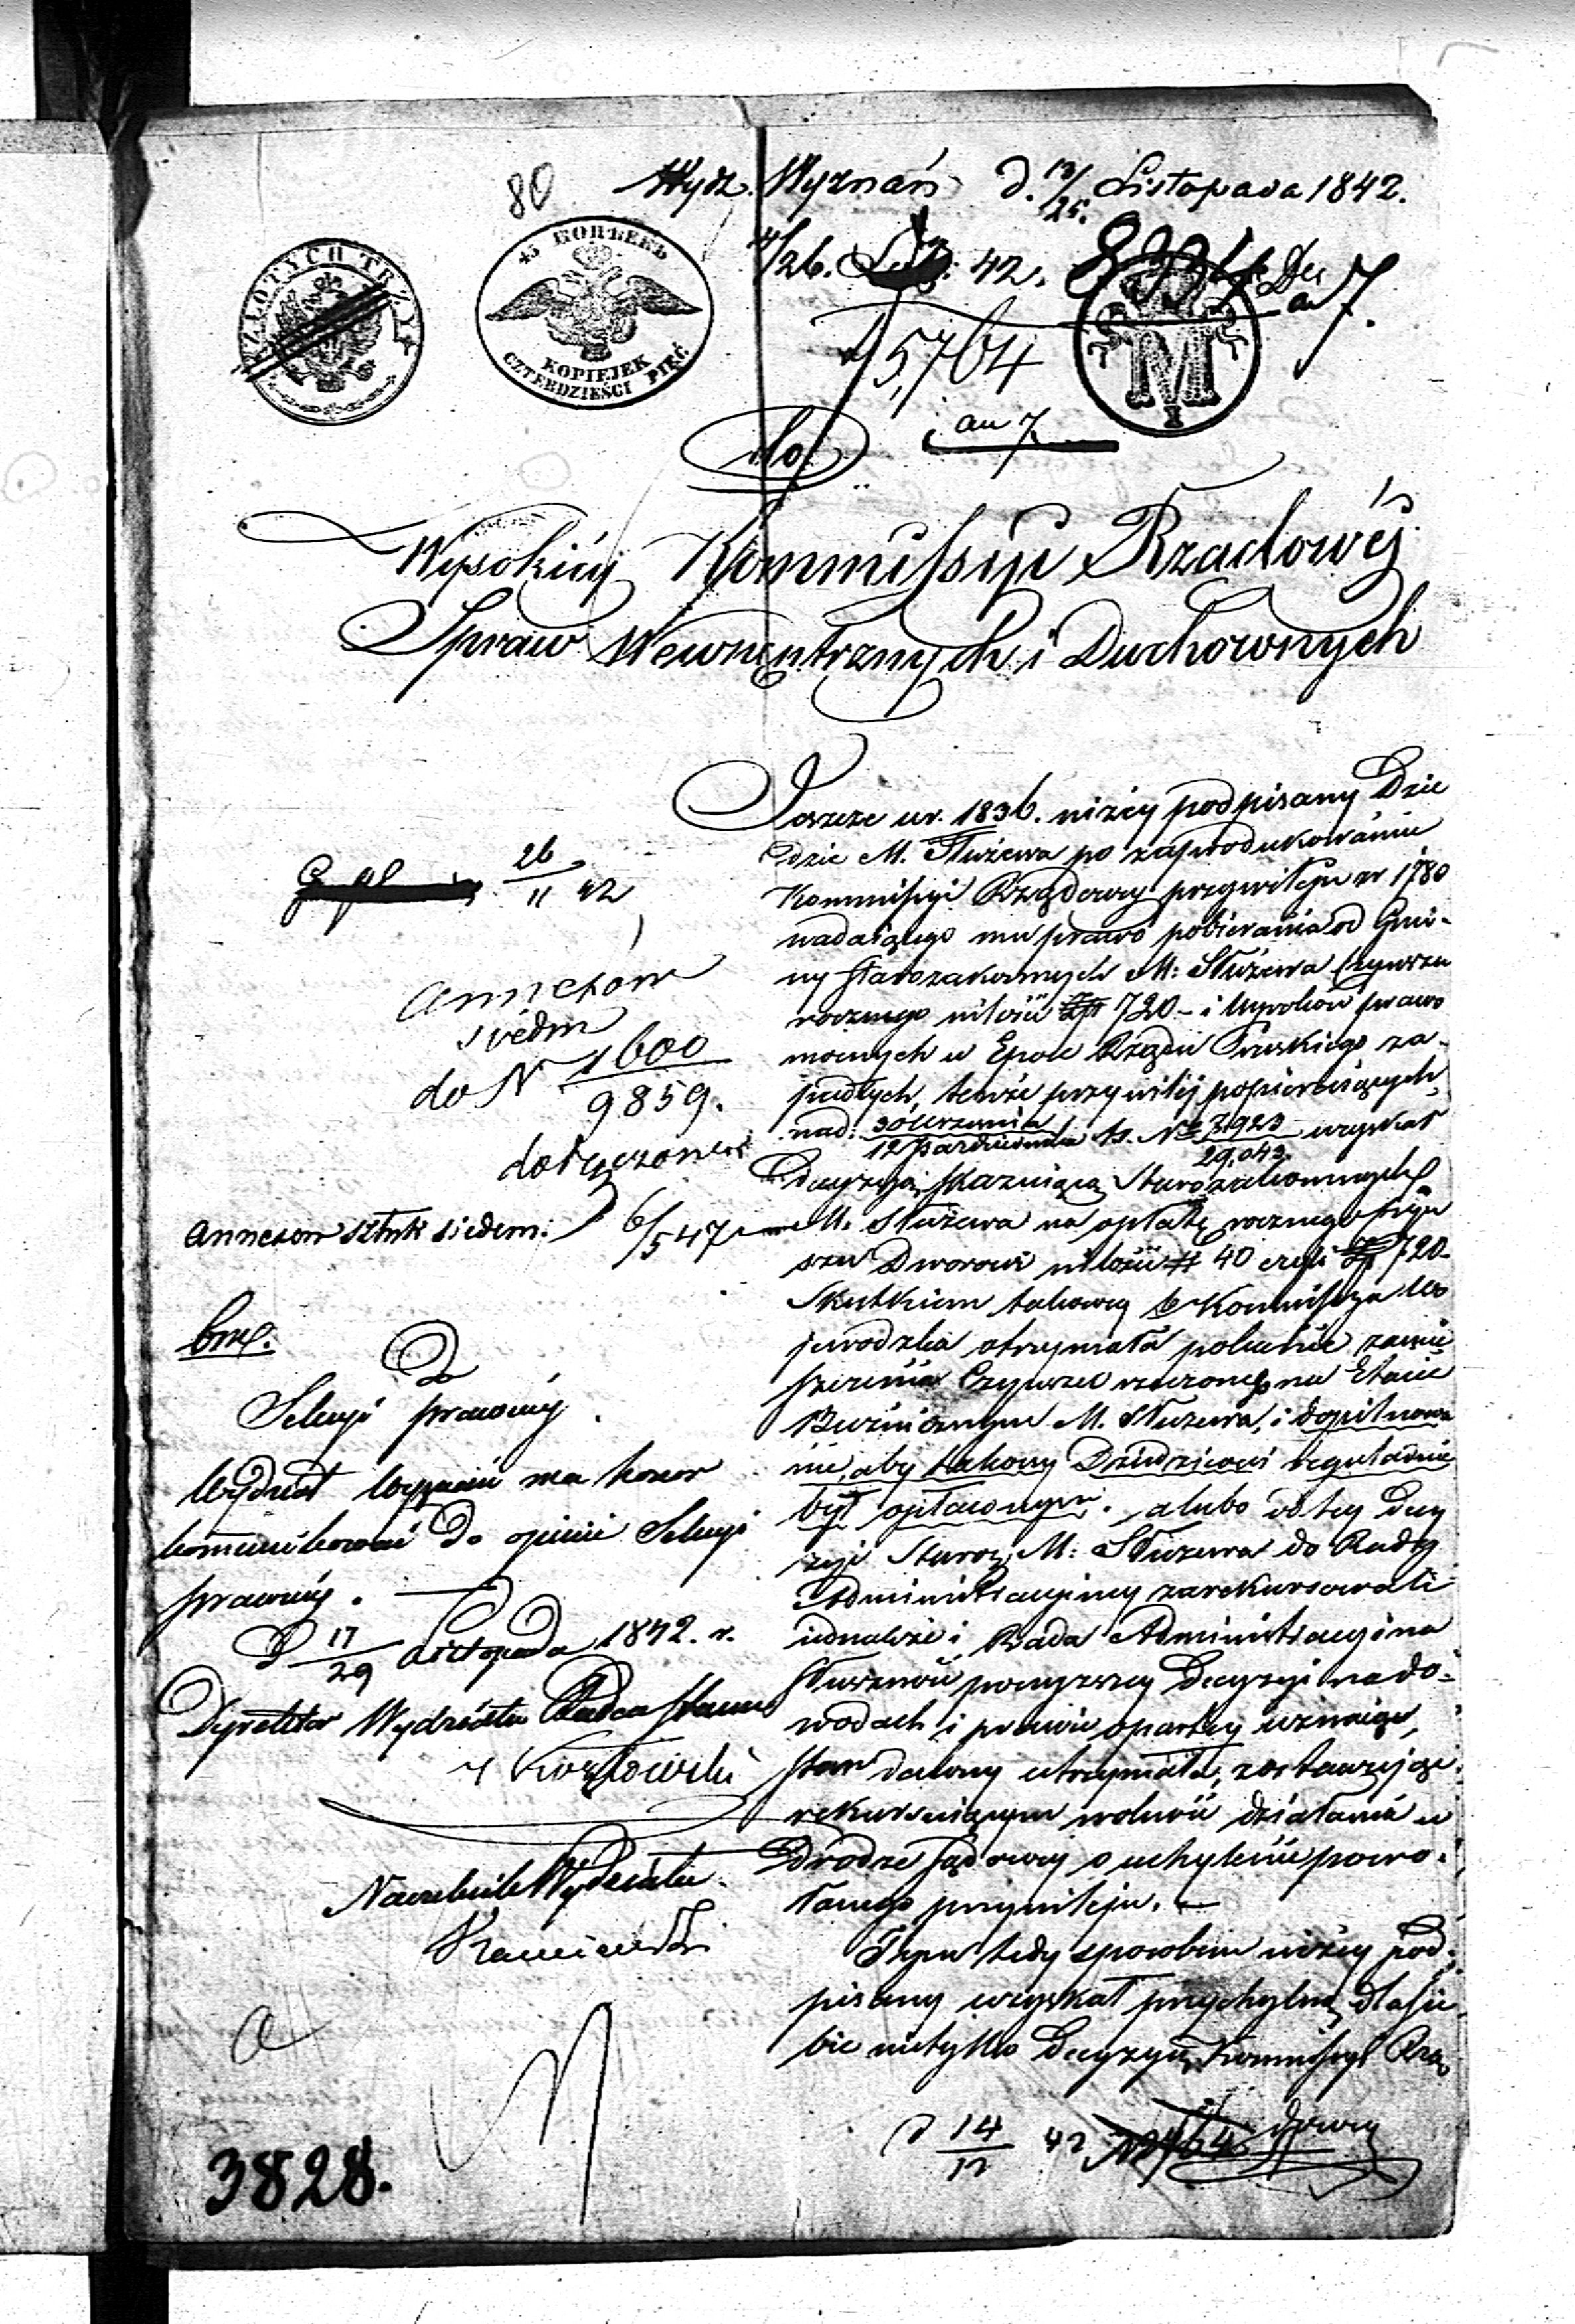 80
Wydz. Wyznań d. 13/25. Listopada 1842.
14/26. 42.
ZŁOTYCH TRZY
45 КОПѢЕКЪ
KOPIEJEK
CZTERDZIEŚCI PIĘĆ
M
15,704
an 7
do
Wysokiéy Kommissyi Rządowéj
Spraw Wewnętrznych i Duchownych
Jeszcze w r. 1836. niżey podpisany Dzie
dzic M. Służewa po zaprodukowaniu
Kommissyi Rządowey przywileju z r 1780
nadaiącego mu prawo pobierania od Gmi-
ny Starozakonnych M: Służewa Czynszu
rocznego w ilości Zp 720.- i Wyroków prawo
mocnych w Epoce Rządu Pruskiego za-
padłych, tenże przywilej popieraiących,
nad: 30 Września/12 Października t.r. No 7,923/29,043 uzyskał
Decyzyą skazuiącą Starozakonnych
M. Służewa na opłatę rocznego Czyn
szu Dworowi w ilości # 40 czyli Zp 720.-
Skutkiem takowey b. Kommissya Wo
jewodzka otrzymała polecenie zamie
szczenia Czynszu rzeczonego na Etacie
Bużniczym M. Służewa, i dopilnowa
nie, aby takowy Dziedzicowi regularnie
był opłaconym. a lubo od tey Decy
zyi Staroz. M: Służewa do Rady
Administracyjney zarekursowali
jednakże i Rada Administracyjna
słuszność powyższey Decyzyi na do-
wodach i prawie opartey uznając,
stan dawny utrzymała, zostawując
rekursuiącym wolność działania w
Drodze Sądowey o uchylenie powo-
łanego przywileju. —
Tym tedy sposobem niżey pod-
pisany uzyskał przychylną dla sie
bie nietylko Decyzyą Kommissyi Rzą
dowey
26/11 42
Annexów
siedm
do N 1600/9859.
dołączone
Annexów sztuk siedem. 6/547
bmp.
Do
Sekcyi prawnéy.
Wydział Wyznań ma honor
komunikować do opinii Sekcyi
prawnéy. —
D 17/29 Listopada 1842. r.
Dyrektor Wydziału Radca Stanu
Kozłowski
Naczelnik Wydziału
a
d 14/12 42
3828.